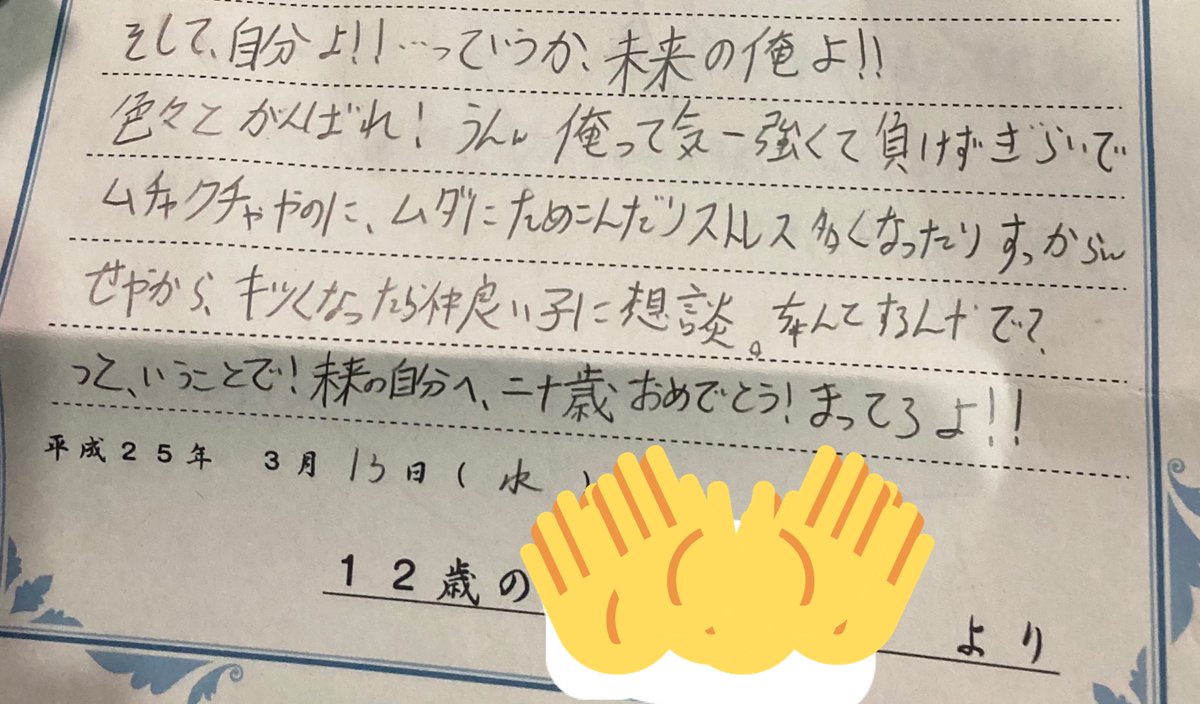 そして、自分よ!!…っていうか、未来の俺よ!!
色々とがんばれ!うん。俺って気一強くて負けずぎらいで
ムチャクチャやのに、ムダにためこんだりストレス多くなったりすっからん
せやから、キツくなったら仲良い子に想談。なんてするんやでで、
って、いうことで!未来の自分へ、二十歳おめでとう!まってろよ!!
平成25年 3月13日(水)
12歳の
より